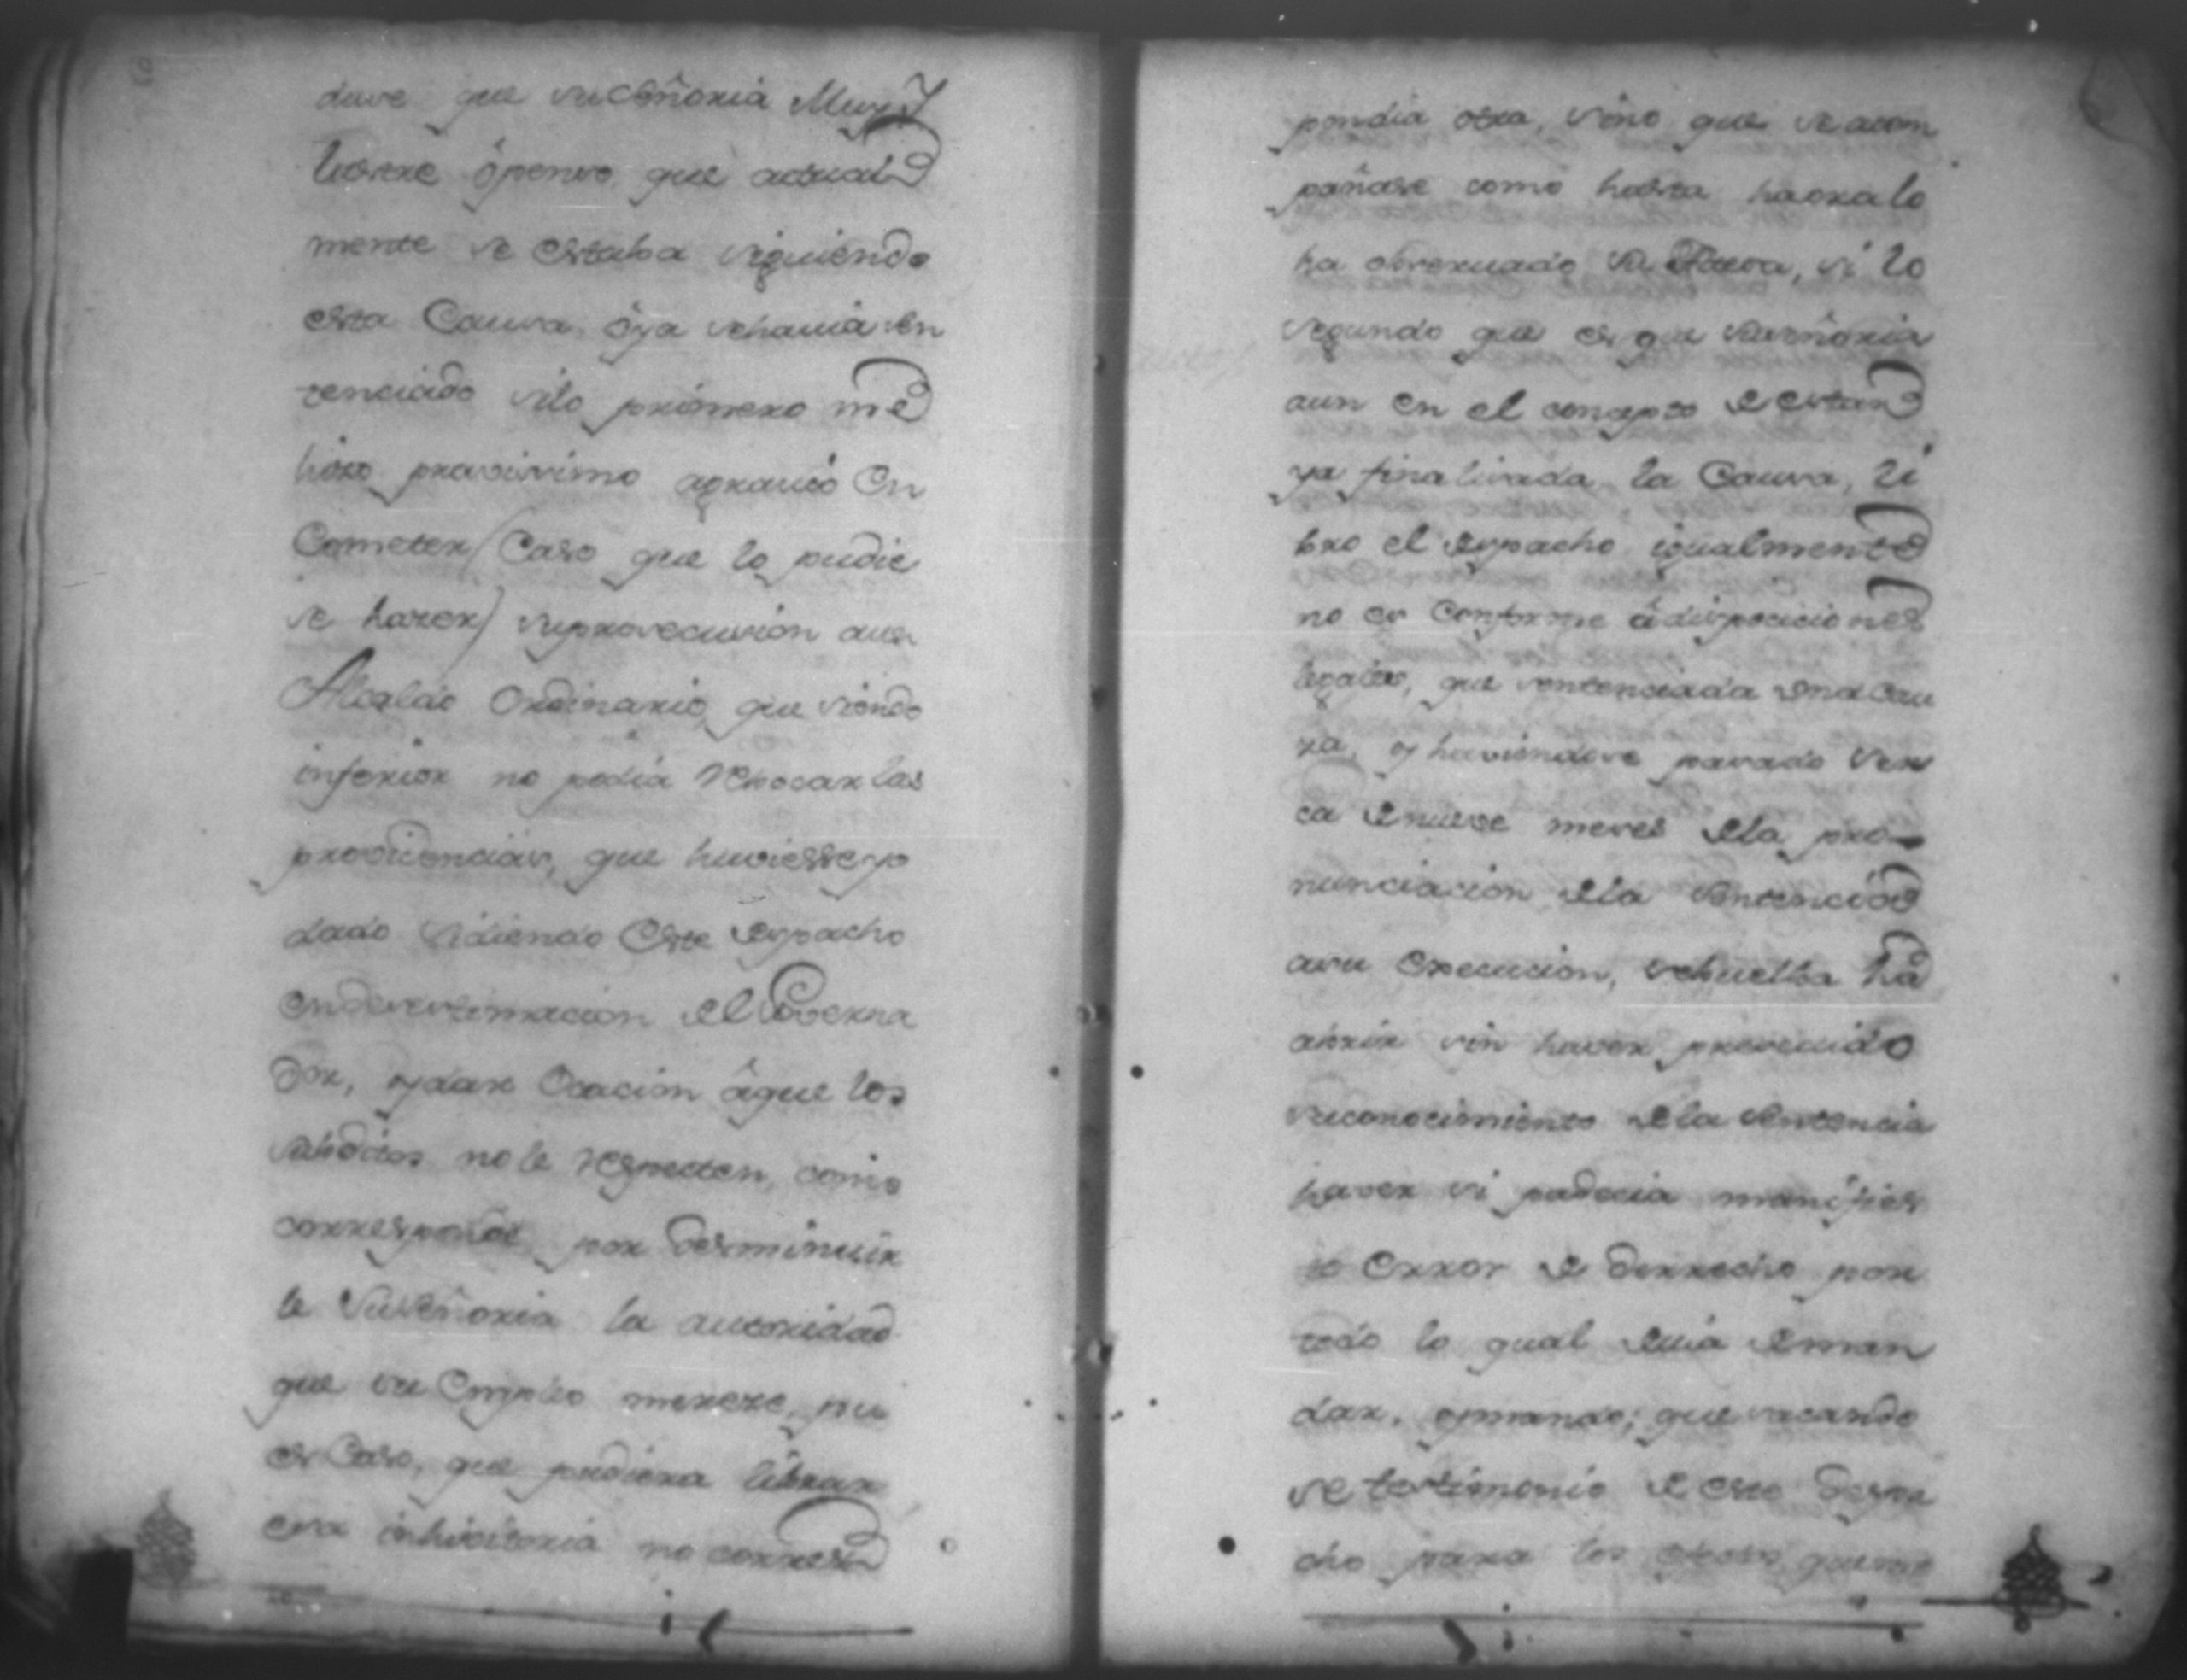 duve que su señoria Muy I
lustre ô penso que actual
mente se estaba siguiendo
esta Causa, ôya sehauia sen
tenciado silo primero me
hizo gravissimo agrauio en
Cometer (Caso que lo pudie
se hazer) suprosecusion aun
Alcalde Ordinario, que siendo
inferior no podia rebocar las
providencias, que huviesse yo
dado sidiendo este despacho
en desestimacion del Governa
dor, ydar Ocacion âque los
subditos no le respecten, como
corresponde por desminuir
le Suseñoria la autoridad
que su Empleo mereze, pu
es Caso, que pudiera librar
esta inhivitoria no corres
pondia otra, sino que se acom
pañase como hasta haora lo
ha observuado su , si lo
segundo que es que suseñoria
aun en el concepto de estar
ya finalisada la Causa, li
bro el despacho igualmente
no es Conforme â dispociciones
legales, que sentenciada Una Cau
za, y haviendose pasado Cer
ca de nueve meses dela pro
nunciacion dela Sentencia
asu Execucion, sebuelba hà
abrir sin haver precedido
suconocimiento dela Sentencia
haver si padecia manifies
to Error de Derrecho por
todo lo qual devia de man
dar, y mando; que sacando
se testimonio de este Despa
cho para los efectos que me